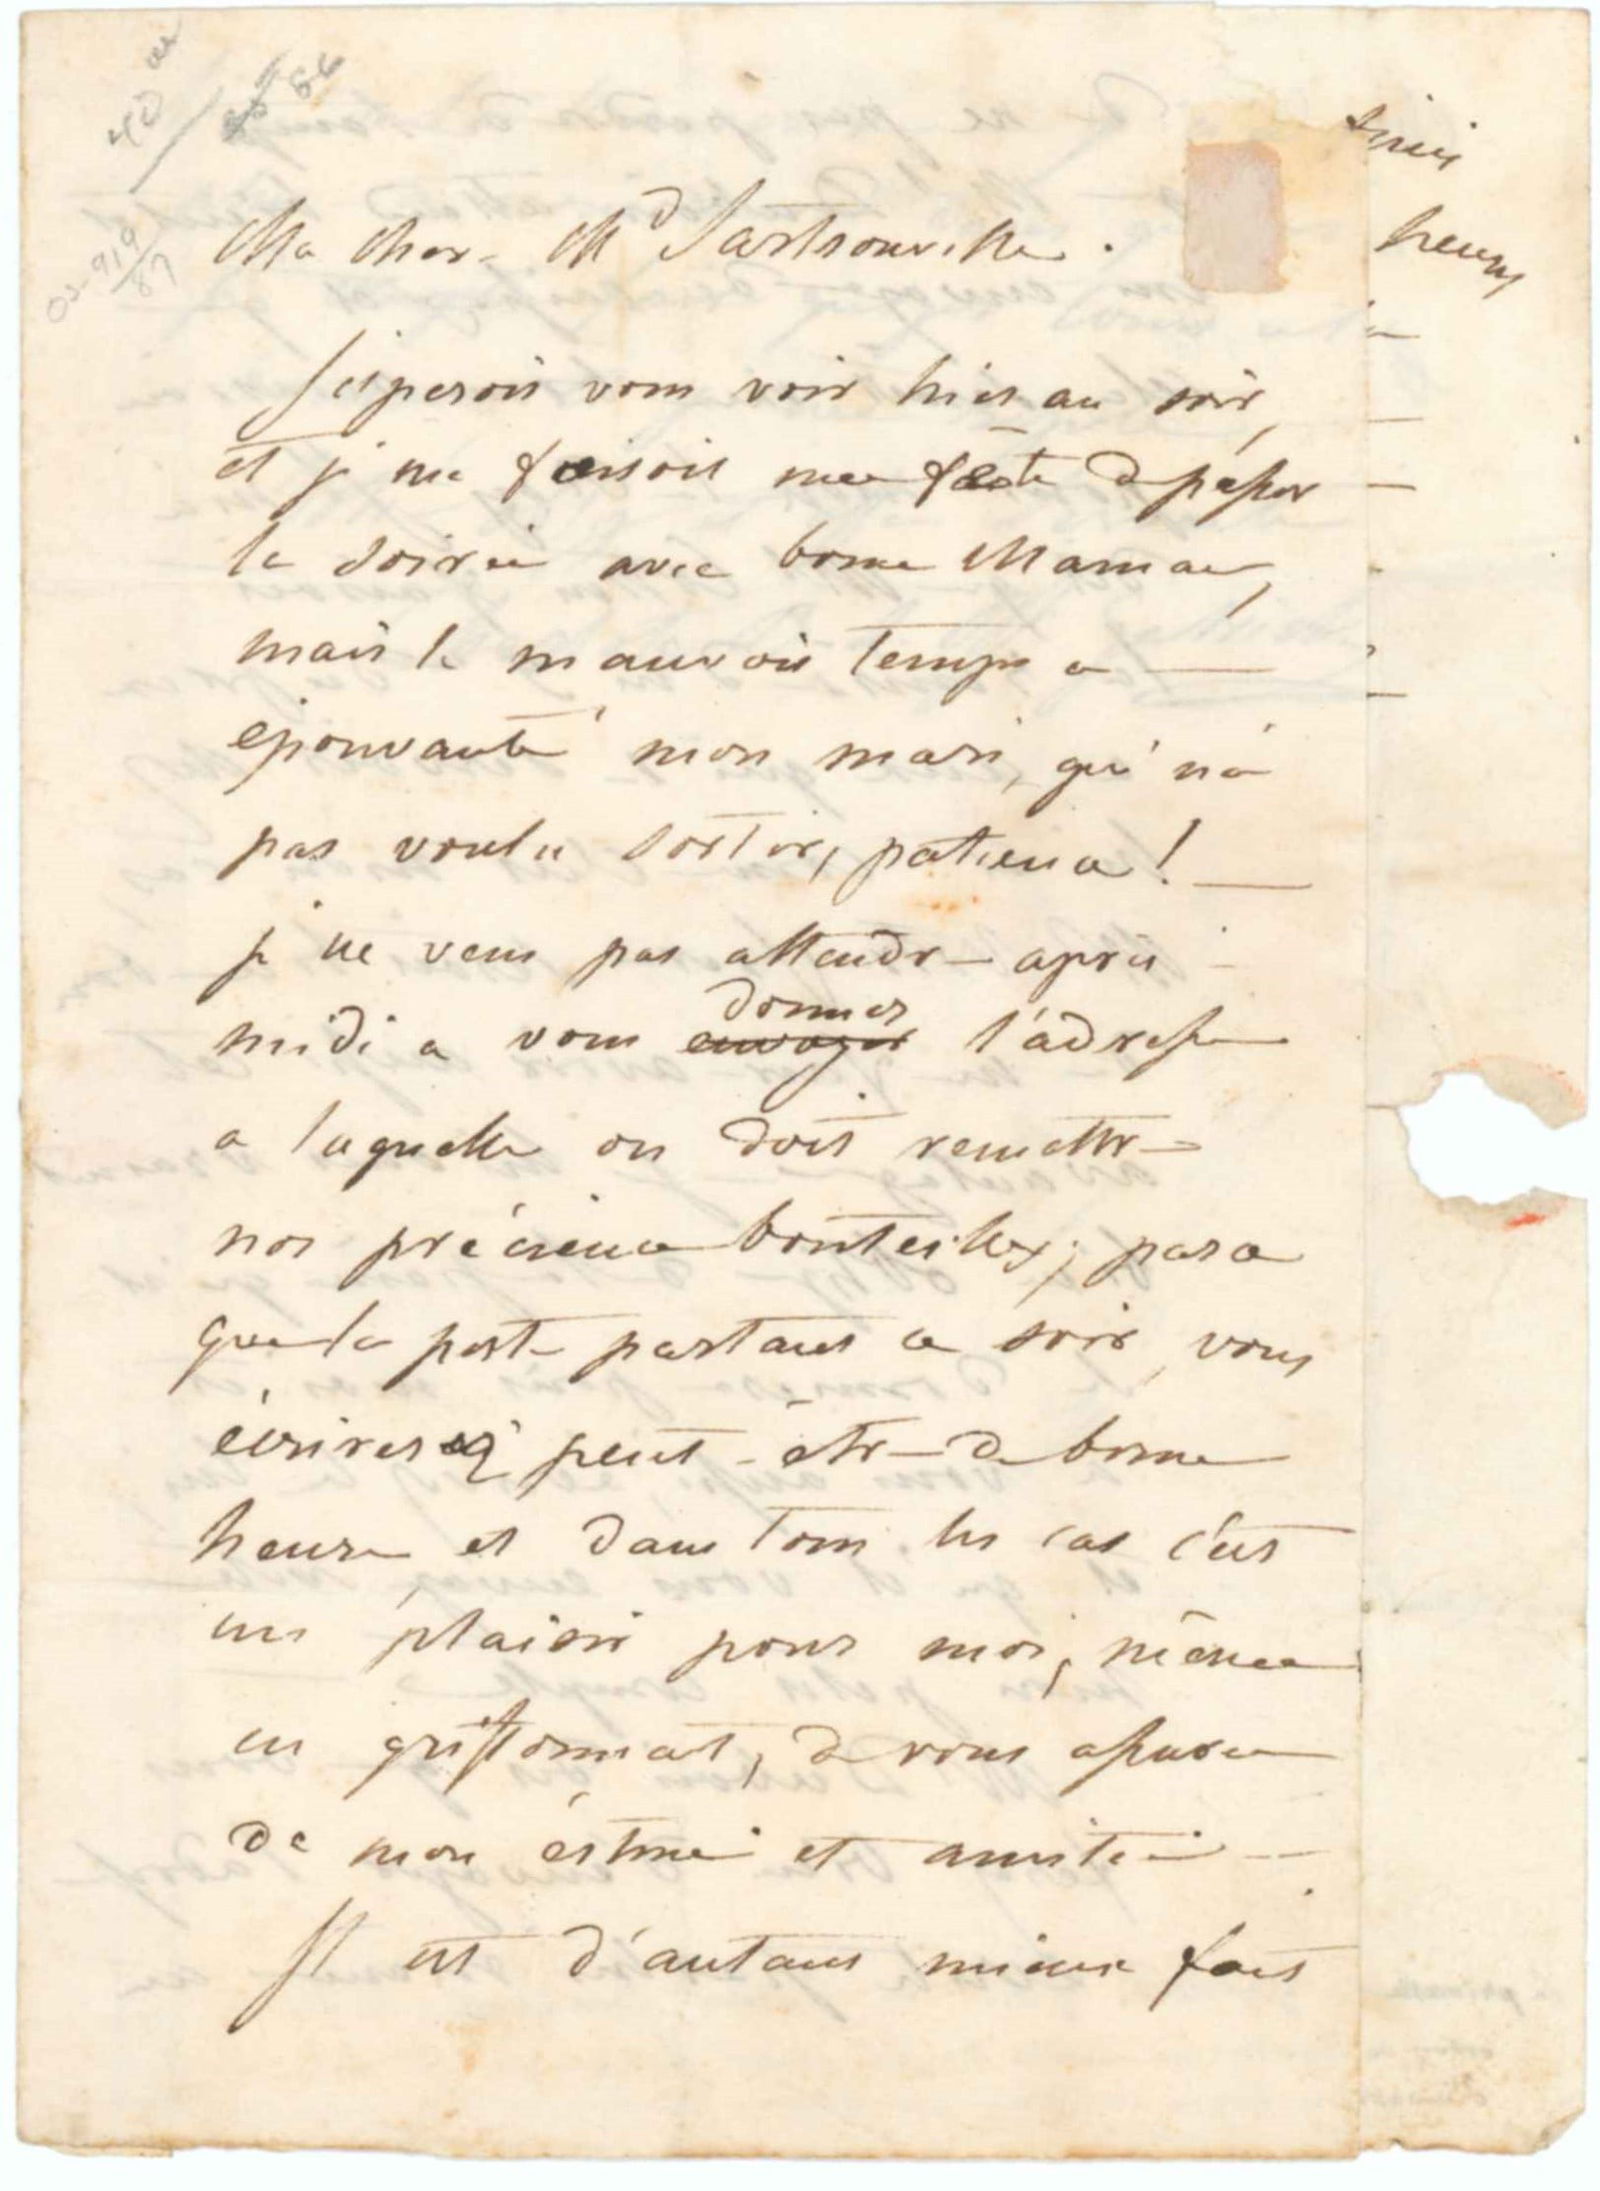 40
86
02-919
87
Ma cher M^d Sartrouville.
J'esperois vous voir hier au soir,
et je me faisois une fête de passer
la soirée avec bonne Maman,
mais le mauvois temps a —
épouvanté mon mari, qui n'a
pas voulu sortir, patience! —
je ne veux pas attendre après
midi a vous envoyer donner l'adresse
a laquelle on doit remettre
nos précieuse bouteilles, parce
que la poste partant ce soir, vous
écrirez peut-être de bonne
heure et dans tous les cas c'est
un plaisir pour moi, même
en griffonnant, de vous assurer
de mon éstime et amitié —
Il est d'autant mieux fait
heures